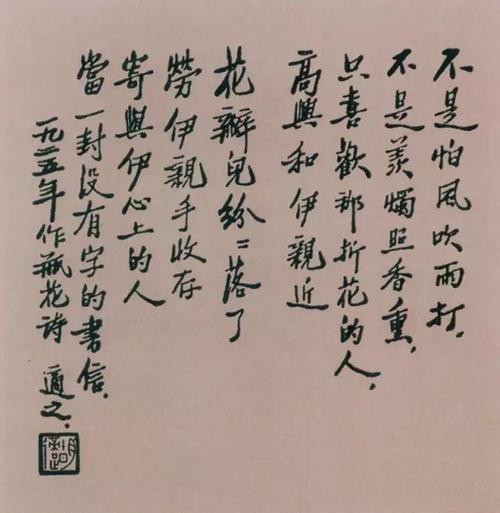 不是怕風吹雨打，
不是羨燭照香熏，
只喜歡那折花的人，
高興和伊親近
花瓣兒紛〻落了
勞伊親手收存
寄與伊心上的人
當一封没有字的書信.
一九二五年作瓶花詩 適之.